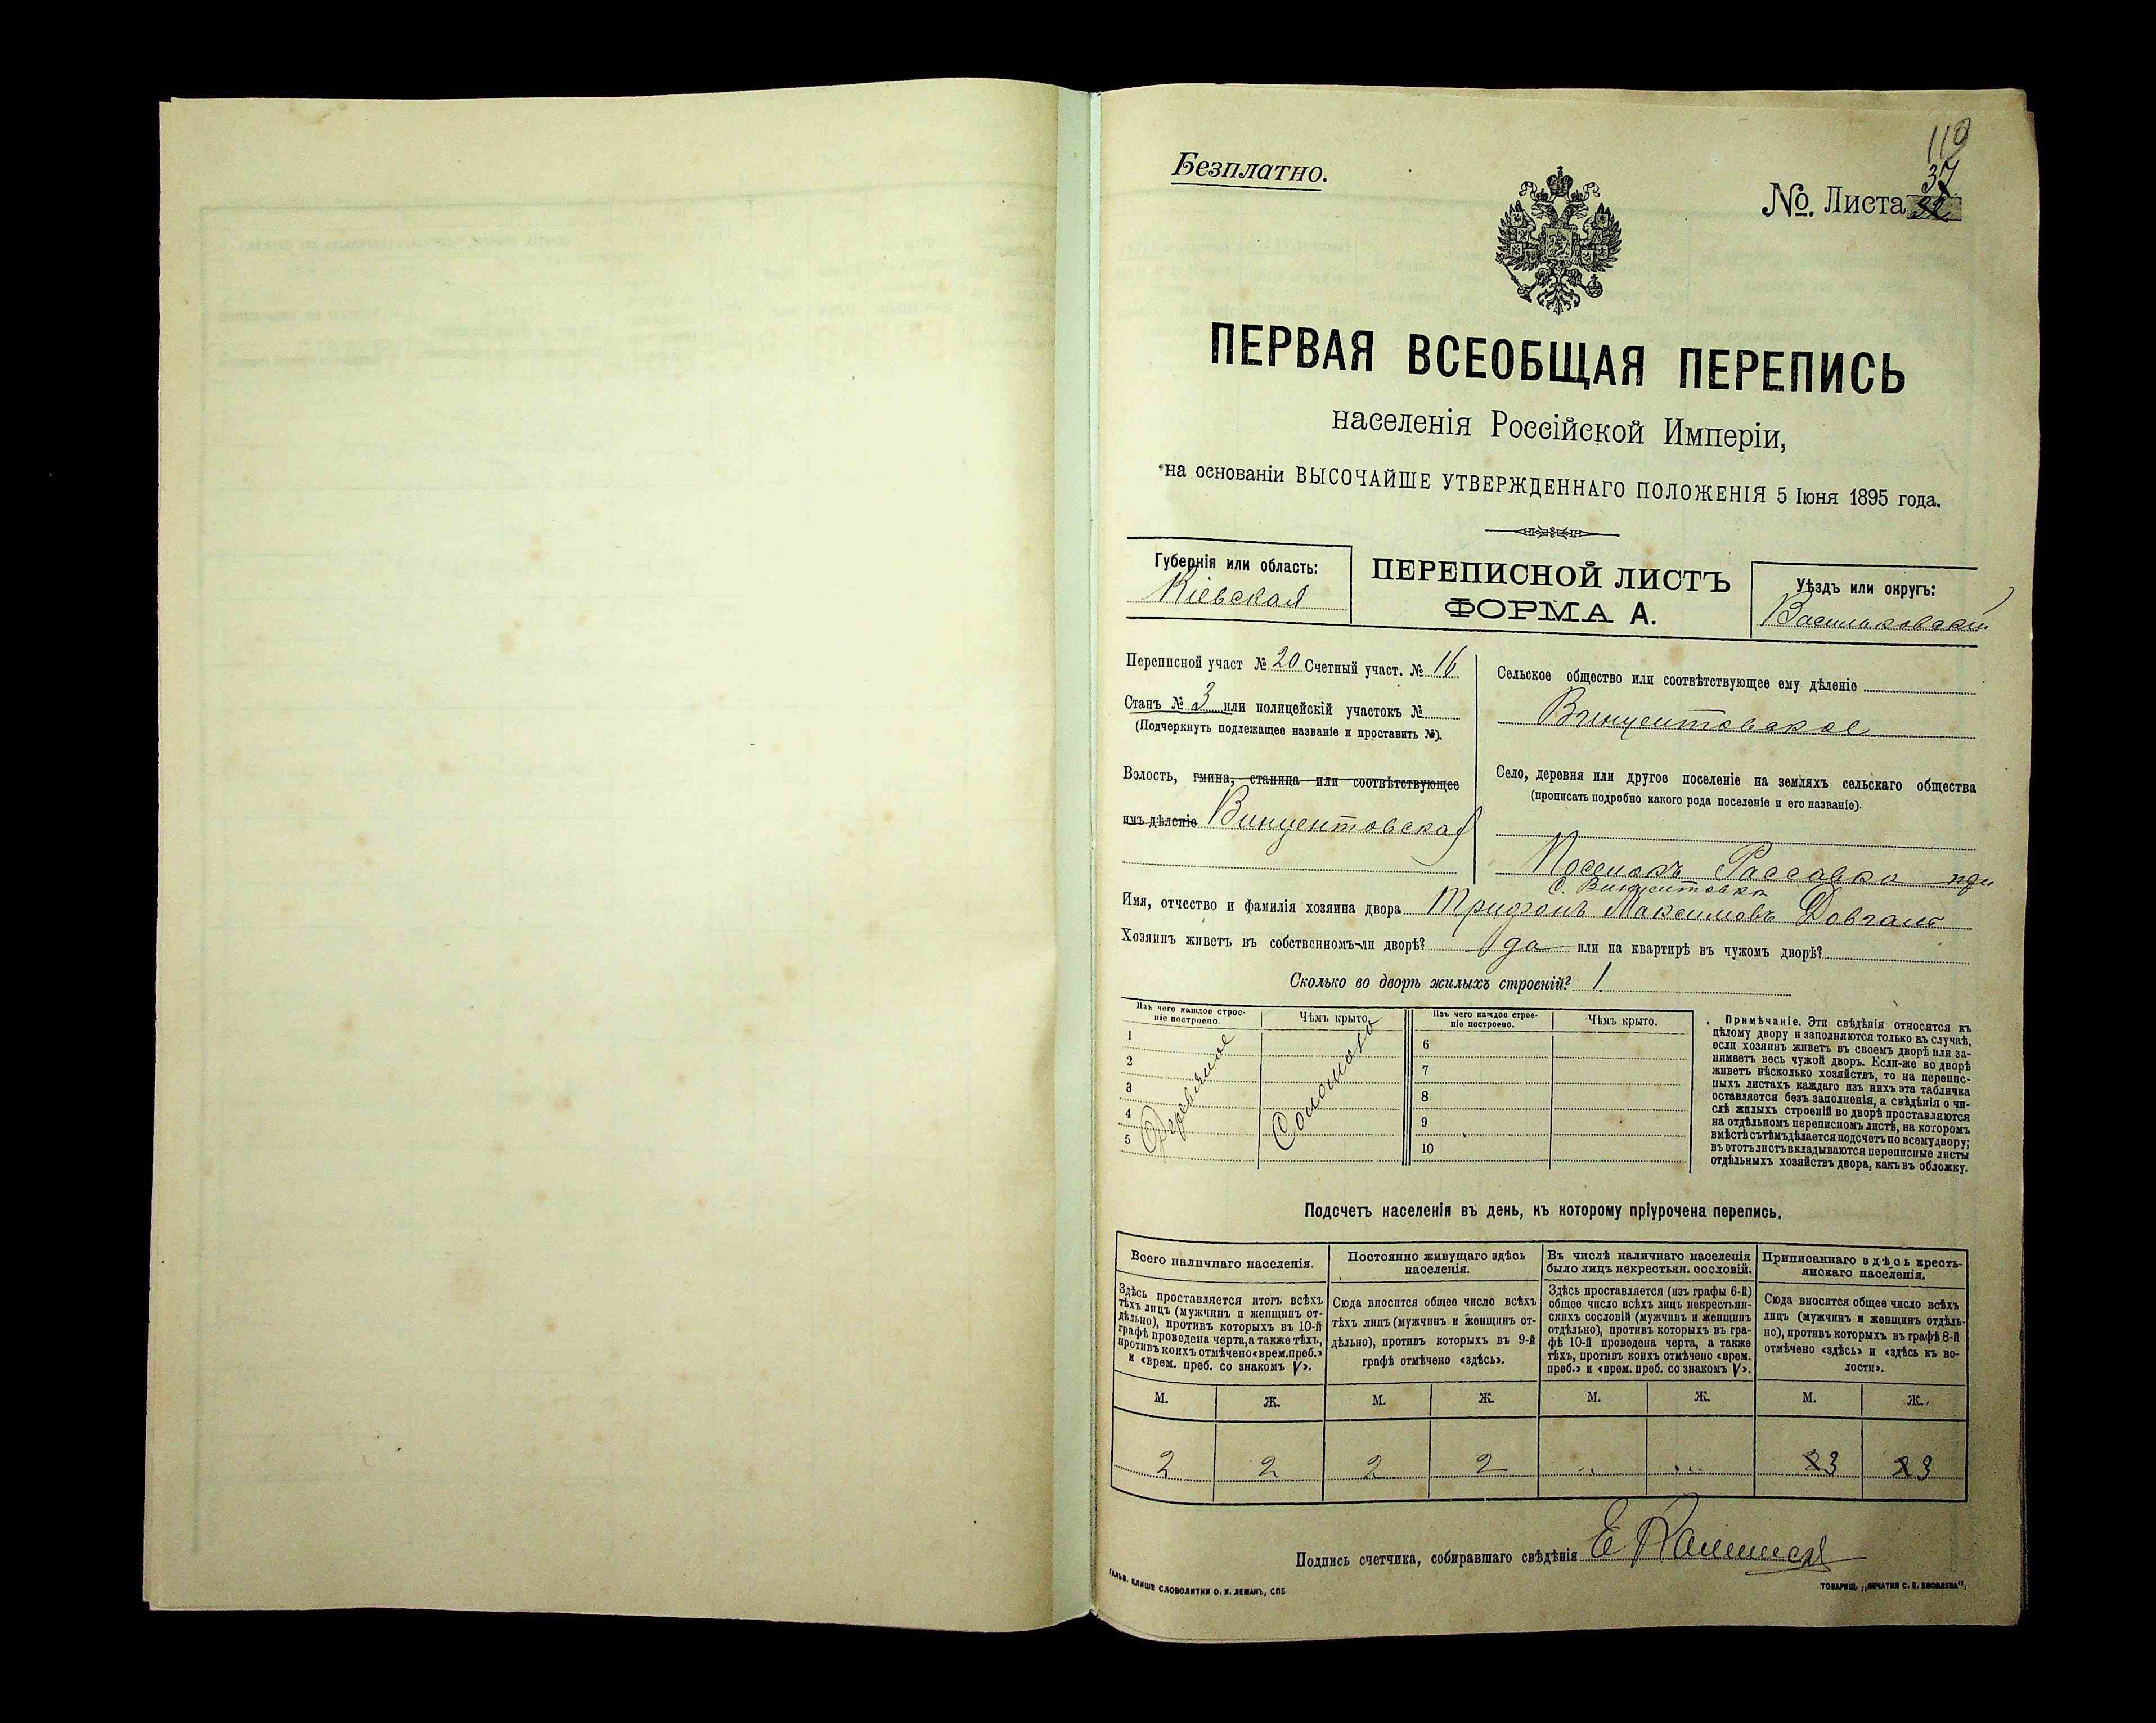 110
Безплатно.
37
№. Листа
ПЕРВАЯ ВСЕОБЩАЯ ПЕРЕПИСЬ
населенія Россійской Имперіи,
на основаніи ВЫСОЧАЙШЕ УТВЕРЖДЕННАГО ПОЛОЖЕНІЯ 5 Іюня 1895 года.
Губернія или область:
Кіевская
ПЕРЕПИСНОЙ ЛИСТЪ
ФОРМА А.
Уѣздъ или округъ:
Васильковскій
Переписной участ № 20 Счетный участ. № 16
Станъ № 3 или полицейскій участокъ №
(Подчеркнуть подлежащее названіе и проставить №).
Волость, гмина, станица или соотвѣтствующее
имъ дѣленіе Винцентовская
Сельское общество или соотвѣтствующее ему дѣленіе
Винцентовское
Село, деревня или другое поселеніе на земляхъ сельскаго общества
(прописать подробно какого рода поселеніе и его названіе).
Поселокъ Рассавка при
с. Винцентовка
Имя, отчество и фамилія хозяина двора Трифонъ Максимовъ Довгаль
Хозяинъ живетъ въ собственномъ-ли дворѣ? да или на квартирѣ въ чужомъ дворѣ?
Сколько во дворѣ жилыхъ строеній? 1.
Изъ чего каждое строе-
ніе построено.
Чѣмъ крыто.
Изъ чего каждое строе-
ніе построено.
Чѣмъ крыто.
1
2
3
4
5
Деревяное
Соломою
6
7
8
9
10
Примѣчаніе. Эти свѣдѣнія относятся къ
цѣлому двору и заполняются только въ случаѣ,
если хозяинъ живетъ въ своемъ дворѣ или за-
нимаетъ весь чужой дворъ. Если-же во дворѣ
живетъ нѣсколько хозяйствъ, то на перепис-
ныхъ листахъ каждаго изъ нихъ эта табличка
оставляется безъ заполненія, а свѣдѣнія о чи-
слѣ жилыхъ строеній во дворѣ проставляются
на отдѣльномъ переписномъ листѣ, на которомъ
вмѣстѣ съ тѣмъ дѣлается подсчетъ по всему двору;
въ этотъ листъ вкладываются переписные листы
отдѣльныхъ хозяйствъ двора, какъ въ обложку.
Подсчетъ населенія въ день, къ которому пріурочена перепись.
Всего наличнаго населенія.
Здѣсь проставляется итогъ всѣхъ
тѣхъ лицъ (мужчинъ и женщинъ от-
дѣльно), противъ которыхъ въ 10-й
графѣ проведена черта, а также тѣхъ,
противъ коихъ отмѣчено «врем. преб.»
и «врем. преб. со знакомъ V».
Постоянно живущаго здѣсь
населенія.
Сюда вносится общее число всѣхъ
тѣхъ лицъ (мужчинъ и женщинъ от-
дѣльно), противъ которыхъ въ 9-й
графѣ отмѣчено «здѣсь».
Въ числѣ наличнаго населенія
было лицъ некрестьян. сословій.
Здѣсь проставляется (изъ графы 6-й)
общее число всѣхъ лицъ некрестьян-
скихъ сословій (мужчинъ и женщинъ
отдѣльно), противъ которыхъ въ гра-
фѣ 10-й проведена черта, а также
тѣхъ, противъ коихъ отмѣчено «врем.
преб.» и «врем. преб. со знакомъ V».
Приписаннаго здѣсь кресть-
янскаго населенія.
Сюда вносится общее число всѣхъ
лицъ (мужчинъ и женщинъ отдѣль-
но), противъ которыхъ въ графѣ 8-й
отмѣчено «здѣсь» и «здѣсь къ во-
лости».
М. Ж. М. Ж. М. Ж. М. Ж.
2 2 2 2 .. ... 2 3 2 3
Подпись счетчика, собиравшаго свѣдѣнія Е
ГАЛЬВ. КЛИШЕ СЛОВОЛИТНИ О. И. ЛЕМАНЪ, СПБ
ТОВАРИЩ. „ПЕЧАТНЯ С. П. ЯКОВЛЕВА".